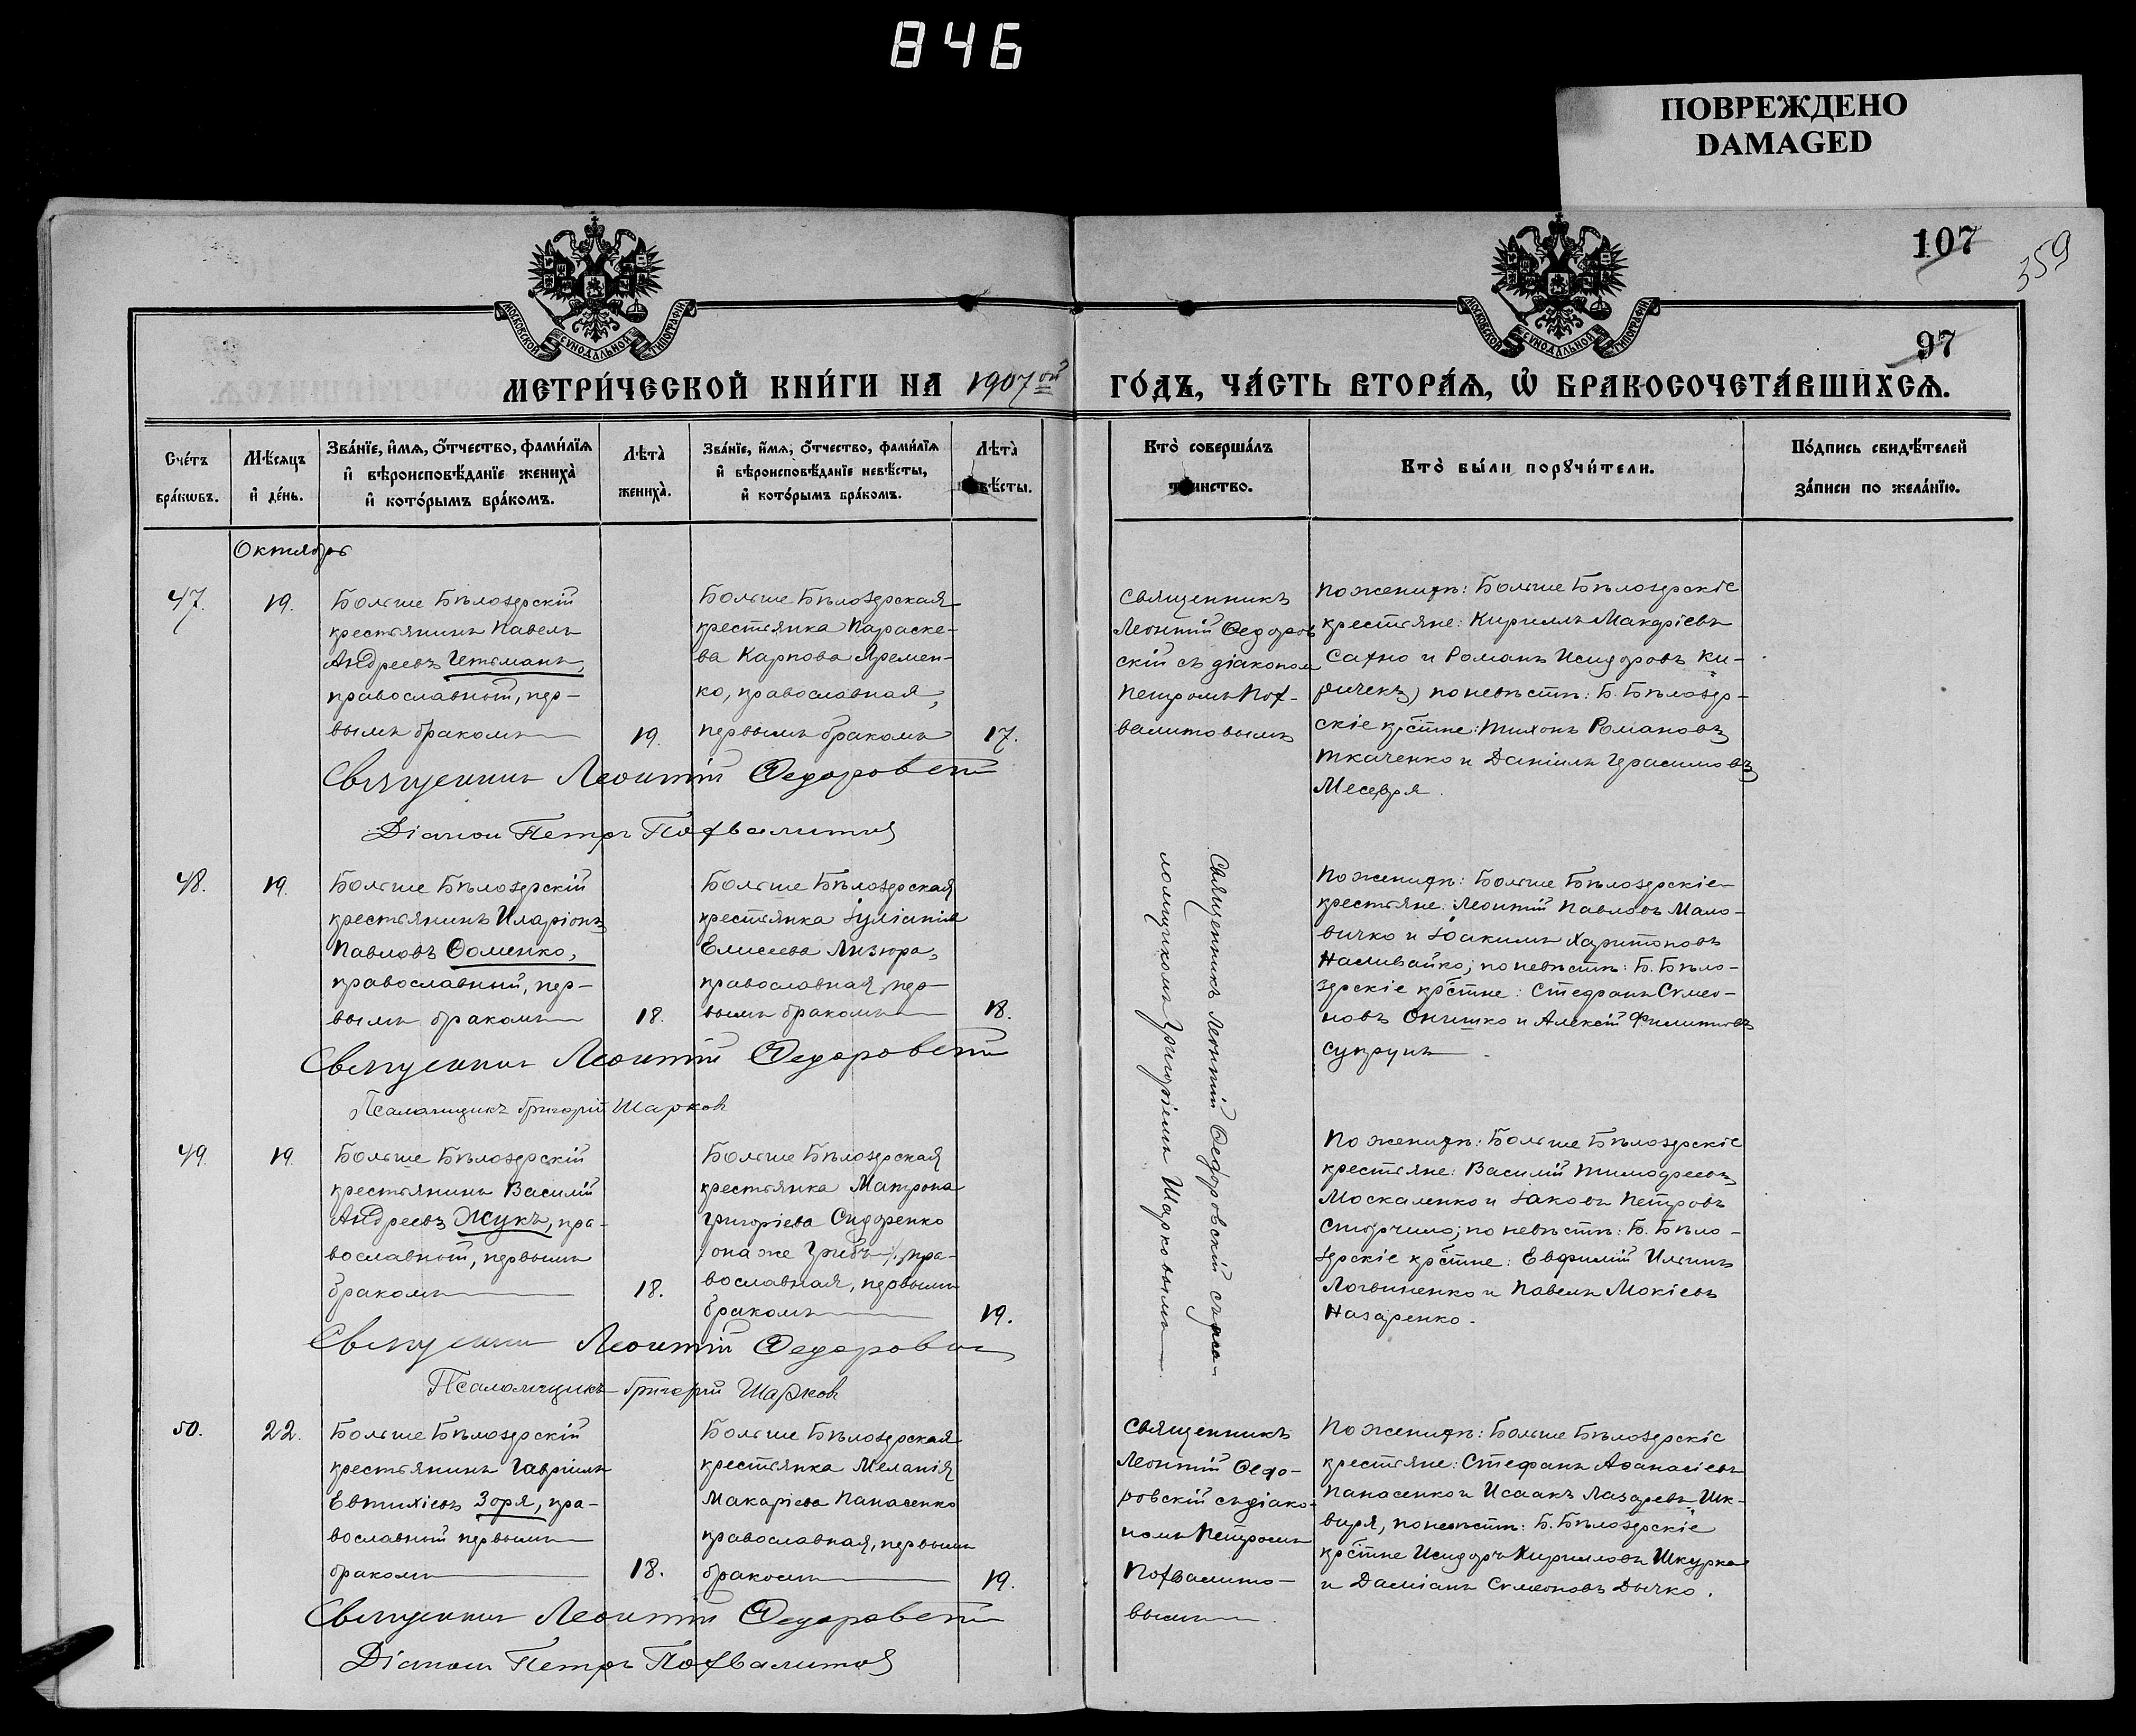 846
ПОВРЕЖДЕНО
DAMAGED
107
359
97
МОСКОВСКОЙ СУНОДАЛЬНОЙ ТИПОГРАФІИ
МОСКОВСКОЙ СУНОДАЛЬНОЙ ТИПОГРАФІИ
МЕТРИ́ЧЕСКОЙ КНИ́ГИ НА 1907ой ГО́ДЪ, ЧА́СТЬ ВТОРА́Ѧ, Ѡ҆ БРАКОСОЧЕТА́ВШИХСѦ.
Сче́тъ бра́кѡвъ.
Мѣ́сѧцъ и҆ де́нь.
Зва́нїе, и҆́мѧ, ѻ҆́тчество, фами́лїѧ и҆ вѣроисповѣ́данїе жениха̀ и҆ кото́рымъ бра́комъ.
Лѣта̀ жениха̀.
Зва́нїе, и҆́мѧ, ѻ҆́тчество, фами́лїѧ и҆ вѣроисповѣ́данїе невѣ́сты, и҆ кото́рымъ бра́комъ.
Лѣта̀ невѣ́сты.
Кто̀ соверша́лъ таинство.
Кто̀ бы́ли порꙋчи́тели.
По́дпись свидѣ́телей за́писи по жела́нїю.
Октябрь
47.
19.
Больше Бѣлозерскій
крестьянинъ Павелъ
Андреевъ Гетьманъ,
православный, пер-
вымъ бракомъ
19.
Больше Бѣлозерская
крестьянка Параске-
ва Карпова Яремен-
ко, православная,
первымъ бракомъ
17.
Священникъ
Леонтій Ѳедоров
скій съ діакономъ
Петромъ Пох-
валитовымъ
По женихѣ: Больше Бѣлозерскіе
крестьяне: Кириллъ Макаріевъ
Сахно и Романъ Исидоровъ Ки-
ричекъ; по невѣстѣ: Б. Бѣлозер-
скіе крстне: Тихонъ Романовъ
Ткаченко и Даніилъ Герасимовъ
Месевря.
Священникъ Леонтій Ѳедоровскій
Діаконъ Петръ Похвалитовъ
48.
19.
Больше Бѣлозерскій
крестьянинъ Иларіонъ
Павловъ Ѳоменко,
православный, пер-
вымъ бракомъ
18.
Больше Бѣлозерская
крестьянка Іуліанія
Елисеева Лизюра,
православная, пер-
вымъ бракомъ
18.
Священникъ Леонтій Ѳедоровскій съ пса-
ломщикомъ Григоріемъ Шарковымъ
По женихѣ: Больше Бѣлозерскіе
крестьяне: Леонтій Павловъ Мало-
вичко и Іоакимъ Харитоновъ
Наливайко; по невѣстѣ: Б. Бѣло-
зерскіе крстне: Стефанъ Симео-
новъ Онишко и Алексій Филипповъ
Супрунъ.
Священникъ Леонтій Ѳедоровскій
Псаломщикъ Григорій Шарковъ
49.
19.
Больше Бѣлозерскій
крестьянинъ Василій
Андреевъ Жукъ, пра-
вославный, первымъ
бракомъ
18.
Больше Бѣлозерская
крестьянка Матрона
Григоріева Сидоренко
/она же Грибъ/, пра-
вославная, первымъ
бракомъ
19.
По женихѣ: Больше Бѣлозерскіе
крестьяне: Василій Тимофеевъ
Москаленко и Іаковъ Петровъ
Сторчило; по невѣстѣ: Б. Бѣло-
зерскіе крстне: Евфимій Ильинъ
Логвиненко и Павелъ Мокіевъ
Назаренко.
Священникъ Леонтій Ѳедоровскій
Псаломщикъ Григорій Шарковъ
50.
22.
Больше Бѣлозерскій
крестьянинъ Гавріилъ
Евтихіевъ Зоря, пра-
вославный первымъ
бракомъ
18.
Больше Бѣлозерская
крестьянка Меланія
Макаріева Панасенко
православная, первымъ
бракомъ
19.
Священникъ
Леонтій Ѳедо-
ровскій съ діако-
номъ Петромъ
Похвалито-
вымъ
По женихѣ: Больше Бѣлозерскіе
крестьяне: Стефанъ Аѳанасіевъ
Панасенко и Исаакъ Лазаревъ Шк-
виря, по невѣстѣ: Б. Бѣлозерскіе
крстне Исидоръ Кирилловъ Шкурка
и Даміанъ Симеоновъ Дычко.
Священникъ Леонтій Ѳедоровскій
Діаконъ Петръ Похвалитовъ